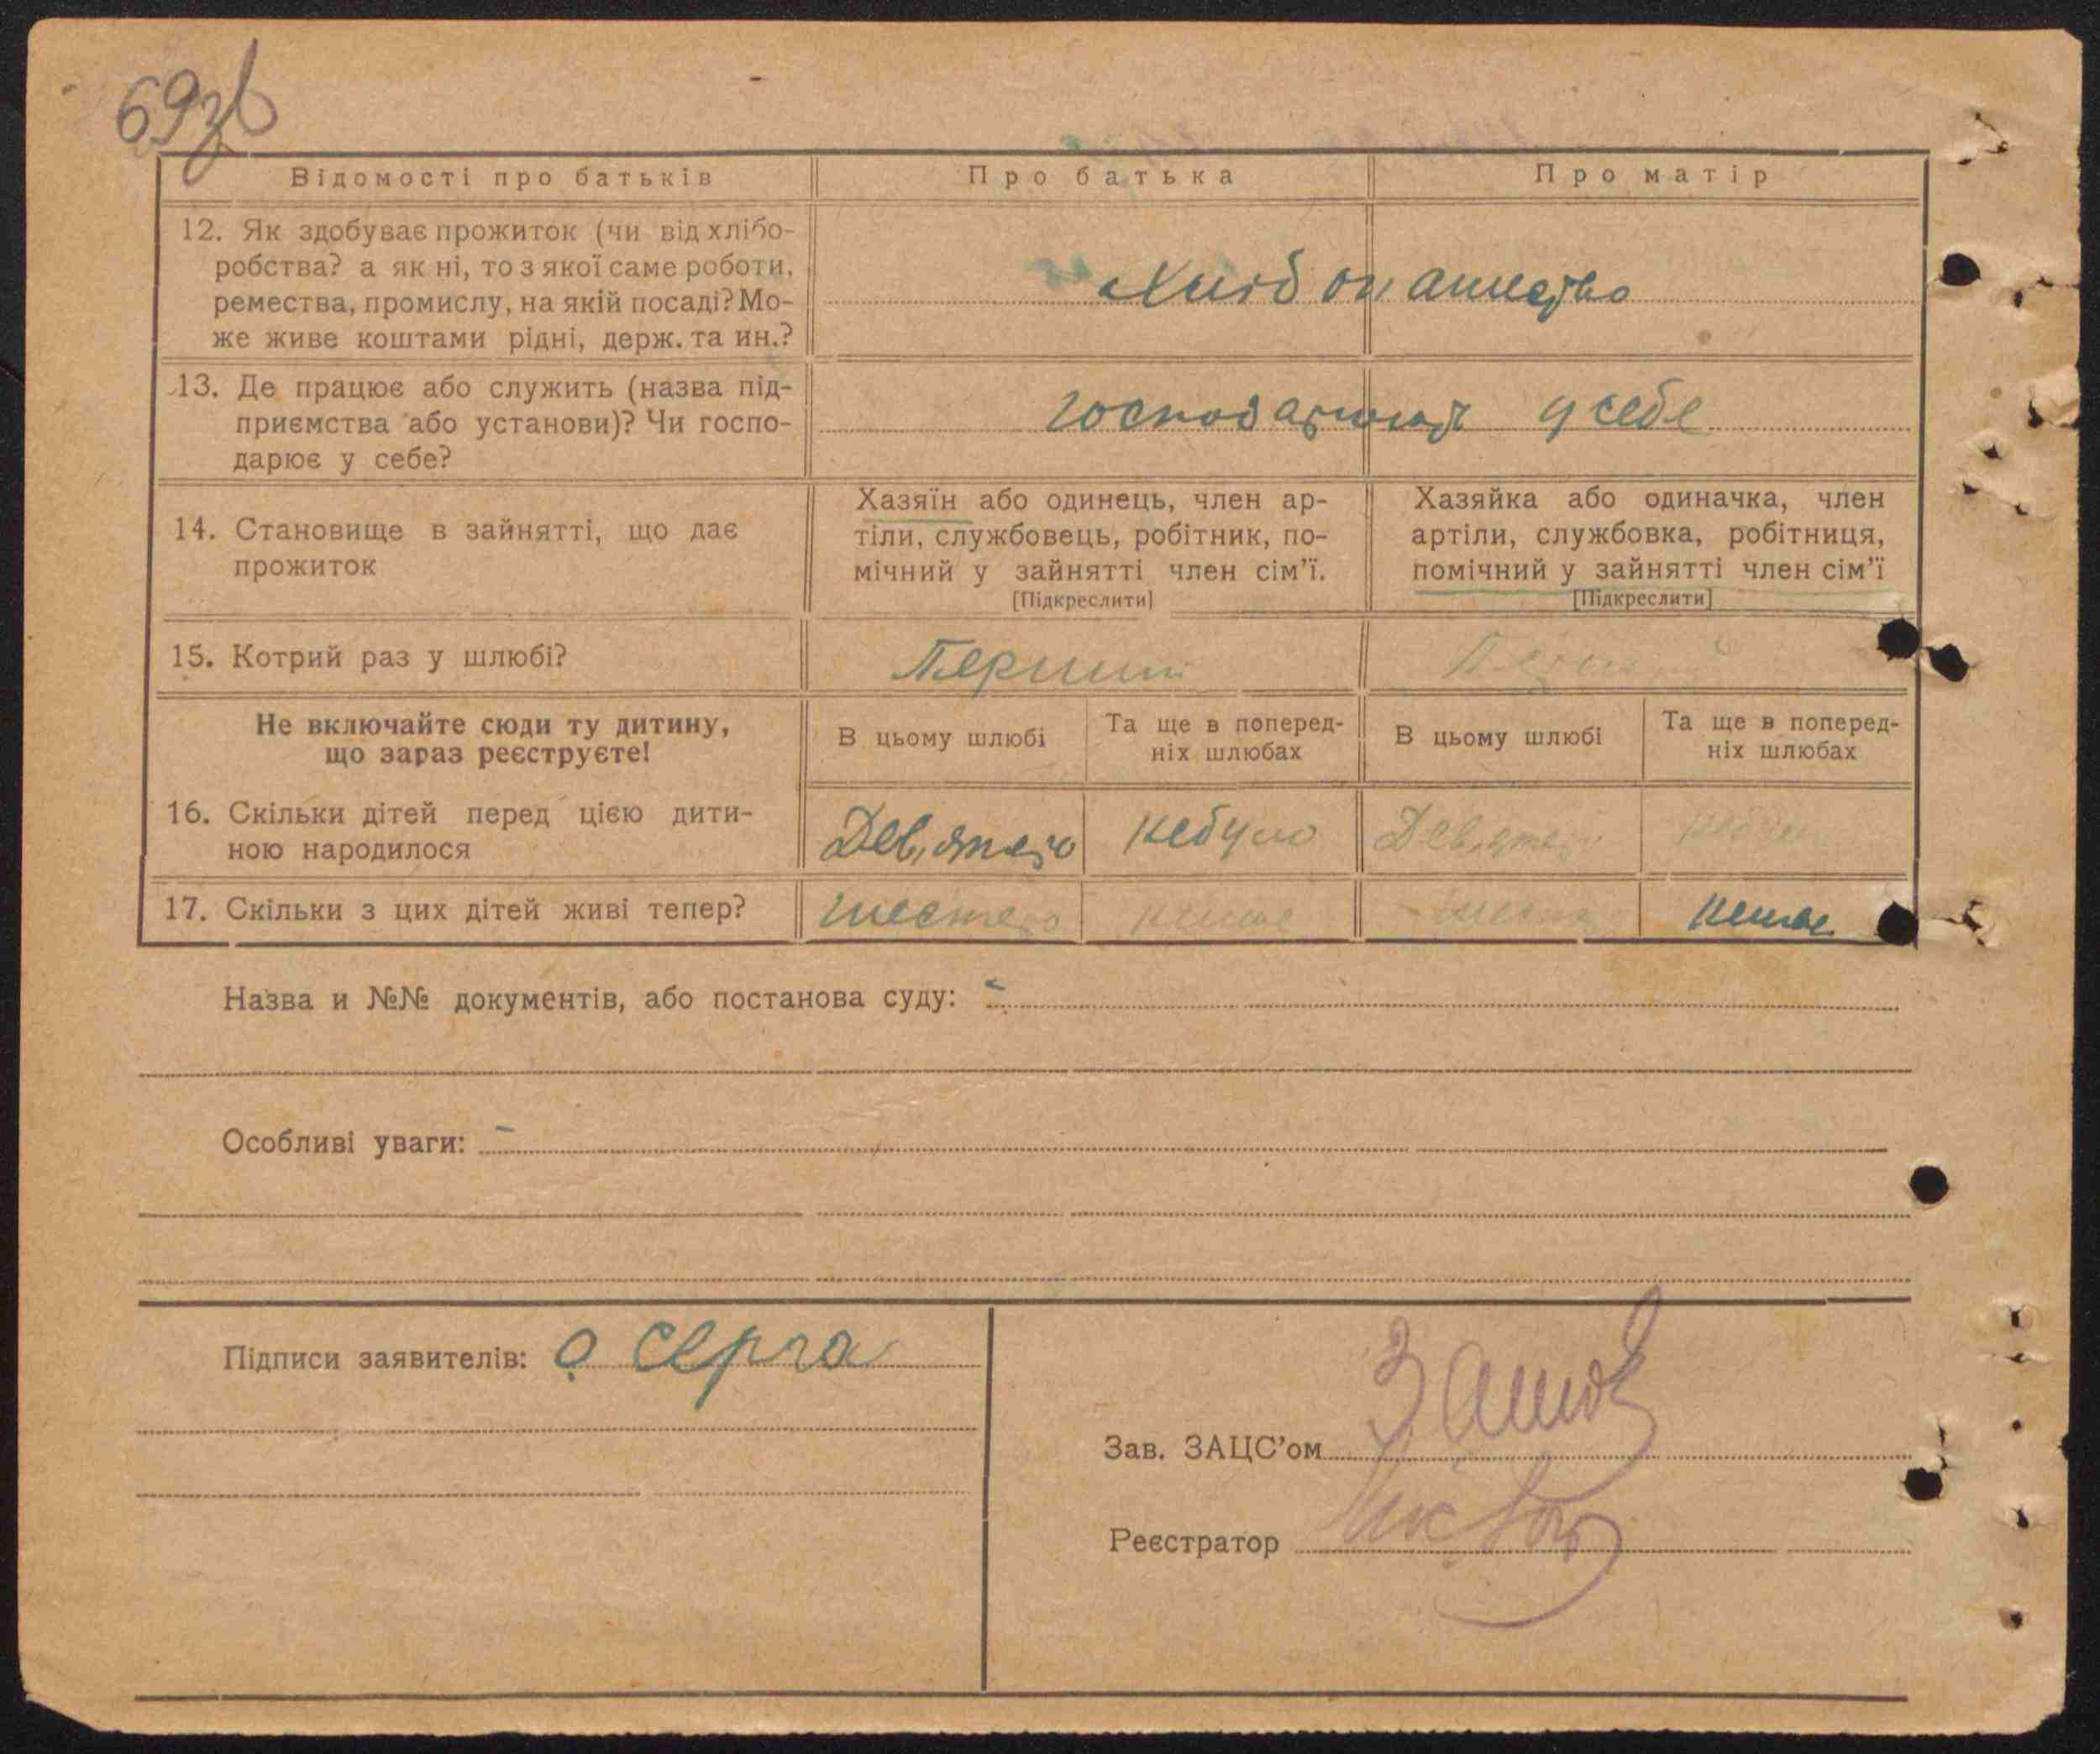 69зв
Відомості про батьків
Про батька
Про матір
12. Як здобуває прожиток (чи від хлібо-
робства? а як ні, то з якої саме роботи,
ремества, промислу, на якій посаді? Мо-
же живе коштами рідні, держ. та ин.?
13. Де працює або служить (назва під-
приємства або установи)? Чи госпо-
дарює у себе?
у себе
14. Становище в зайнятті, що дає
прожиток
Хазяїн або одинець, член ар-
тіли, службовець, робітник, по-
мічний у зайнятті член сім'ї.
[Підкреслити]
Хазяйка або одиначка, член
артіли, службовка, робітниця,
помічний у зайнятті член сім'ї
[Підкреслити]
15. Котрий раз у шлюбі?
Перший
Не включайте сюди ту дитину,
що зараз реєструєте!
В цьому шлюбі
Та ще в поперед-
ніх шлюбах
В цьому шлюбі
Та ще в поперед-
ніх шлюбах
16. Скільки дітей перед цією дити-
ною народилося
Дев,ятеро
небуло
17. Скільки з цих дітей живі тепер?
шестеро
немае
немае
Назва и №№ документів, або постанова суду: -
Особливі уваги: -
Підписи заявителів: О Серга
Зав. ЗАЦС'ом
Реєстратор